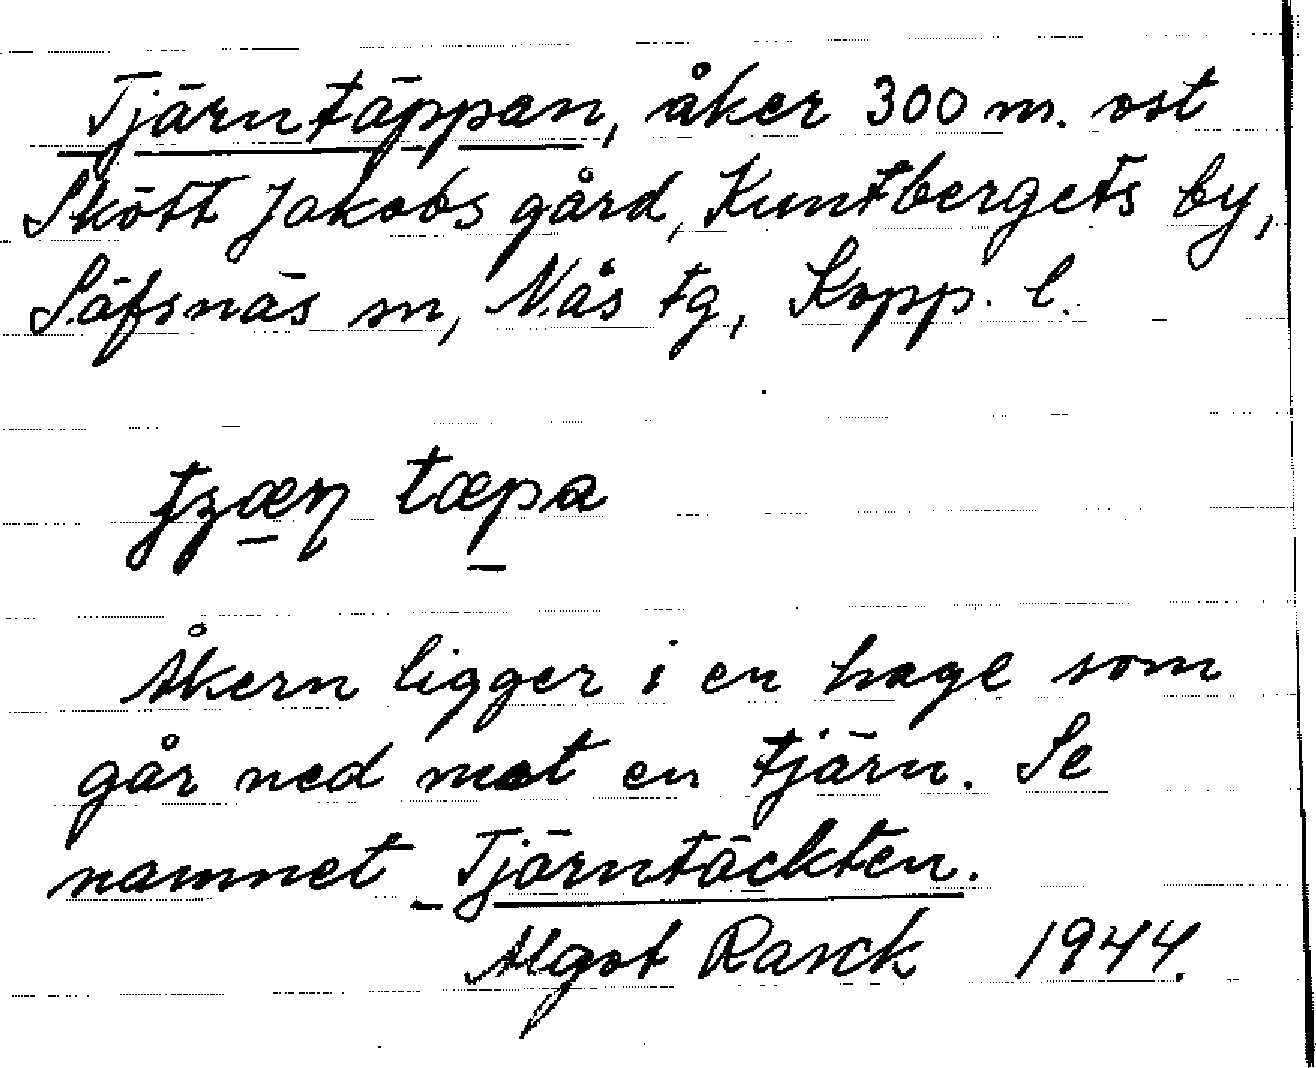 Tjärntäppan, åker 300 m. ost
Skött Jakobs gård, Kuntbergets by,
Säfsnäs sn, Nås tg, Kopp. l.
tæpa
Åkern ligger i en hage som
går ned mot en tjärn. Se
namnet Tjärntäckten.
Algot Rasck 1944.